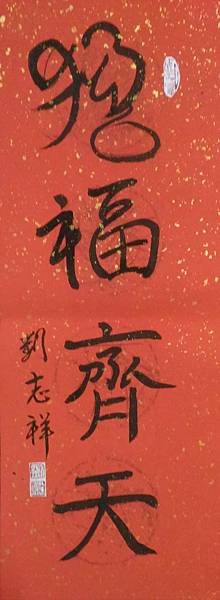 福齊天
劉志祥